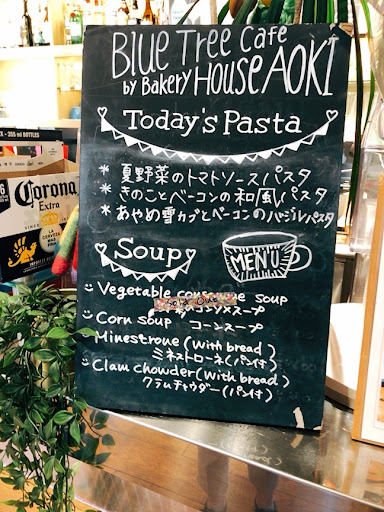 Blue Tree Cafe
by Bakery House AOKI
Today's Pasta
* 夏野菜のトマトソースパスタ
* きのことベーコンの和風パスタ
* あやめ雪カブとベーコンのバジルパスタ
Soup
MENU
Vegetable consomme soup
コンソメスープ
Sold Out
Corn soup コーンスープ
Minestrone (with bread)
ミネストローネ(パン付)
Clam chowder (with bread)
クラムチャウダー(パン付)
355 ml BOTTLES
Corona
Extra
LA CERVEZA
MAS FINA